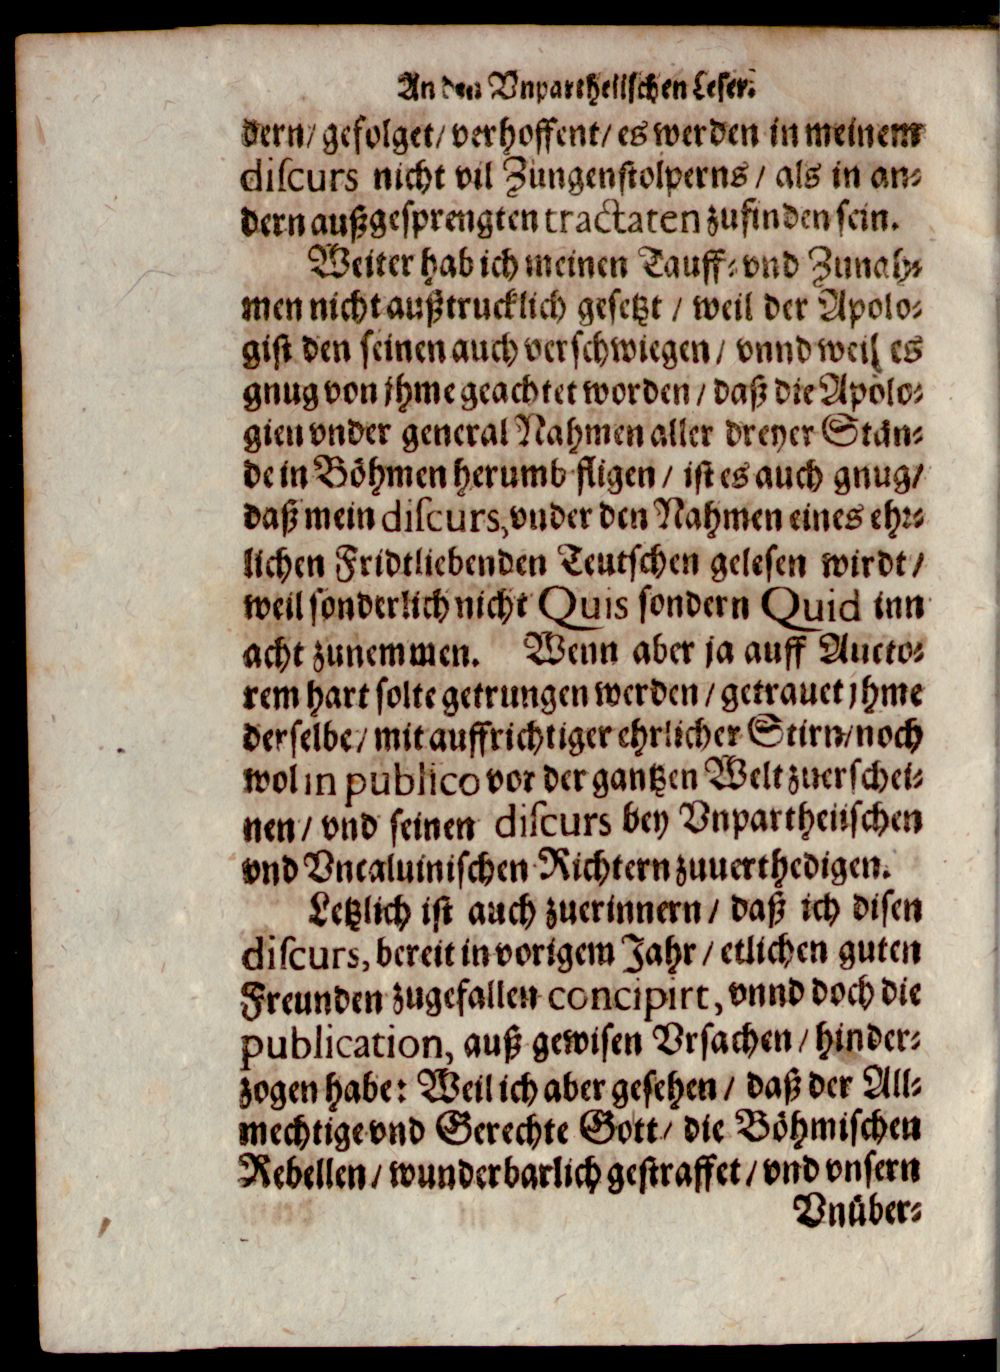 An den Vnpartheiischen Leser.
dern/ gefolget/ verhoffent/ es werden in meinem
discurs nicht vil Zungenstolperns / als in an-
dern außgesprengten tractaten zufinden sein.
Weiter hab ich meinen Tauff- vnd Zunah-
men nicht außtrucklich gesetzt / weil der Apolo-
gist den seinen auch verschwiegen / vnnd weil es
gnug von jhme geachtet worden / daß die Apolo-
gien vnder general Nahmen aller dreyer Stän-
de in Böhmen herumb fligen / ist es auch gnug/
daß mein discurs, vnder den Nahmen eines ehr-
lichen Fridtliebenden Teutschen gelesen wirdt /
weil sonderlich nicht Quis sondern Quid inn
acht zunemmen. Wenn aber ja auff Aucto-
rem hart solte getrungen werden / getrauet jhme
derselbe / mit auffrichtiger ehrlicher Stirn/ noch
wol in publico vor der gantzen Welt zuerschei-
nen / vnd seinen discurs bey Vnpartheiischen
vnd Vncaluinischen Richtern zuuerthedigen.
Letzlich ist auch zuerinnern / daß ich disen
discurs, bereit in vorigem Jahr / etlichen guten
Freunden zugefallen concipirt, vnnd doch die
publication, auß gewisen Vrsachen / hinder-
zogen habe: Weil ich aber gesehen / daß der All-
mechtige vnd Gerechte Gott / die Böhmischen
Rebellen / wunderbarlich gestraffet / vnd vnsern
Vnüber-